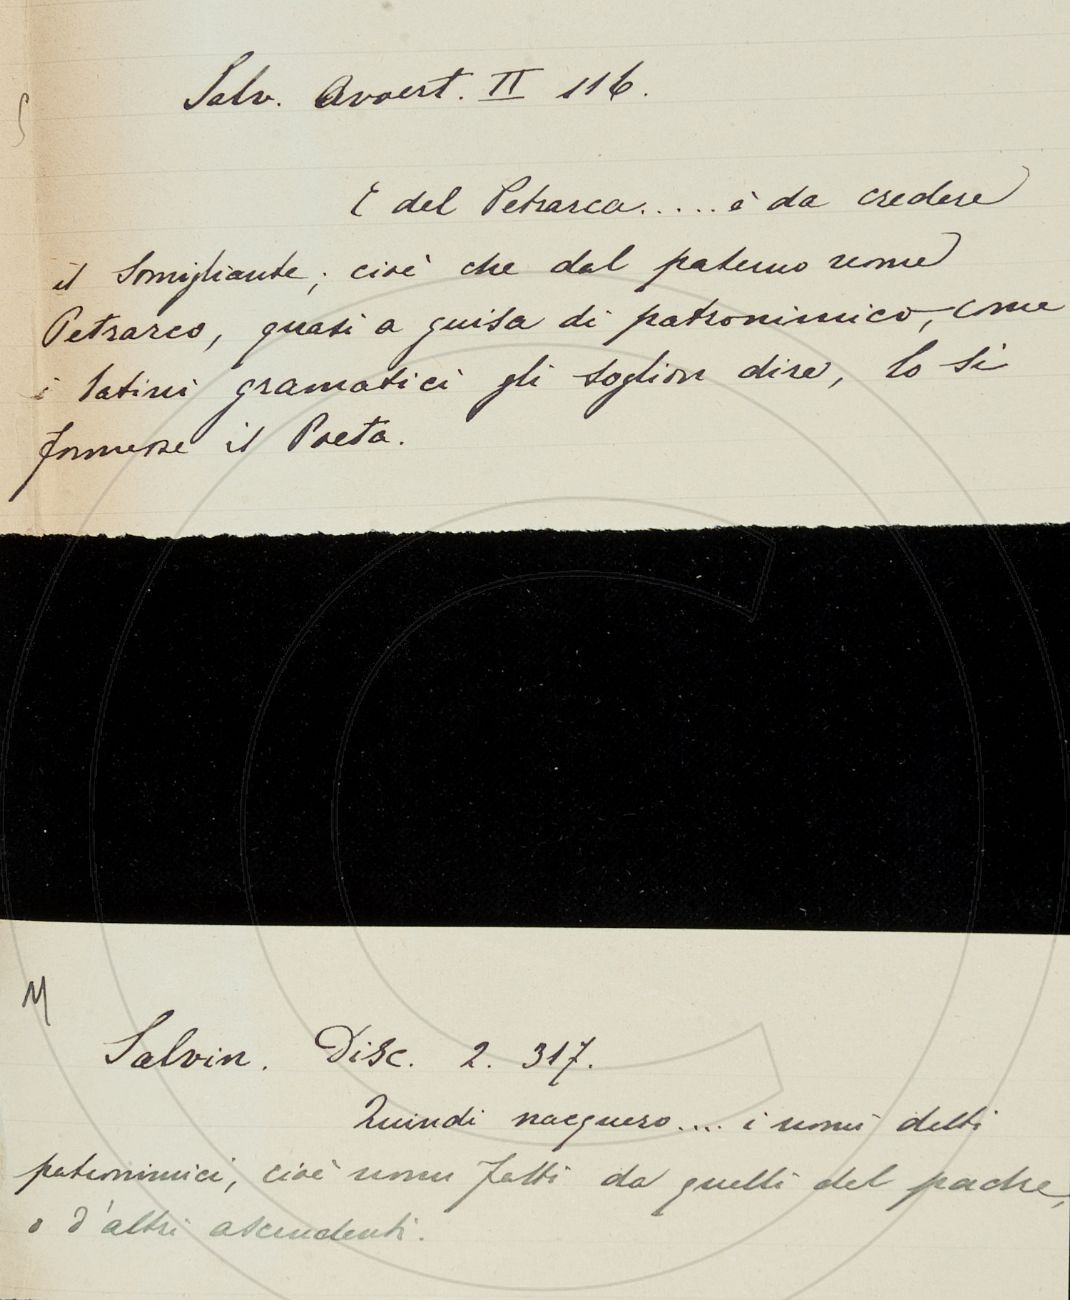 S
Salv. Avvert. II 116.
E del Petrarca..... è da credere
il somigliante; cioè che dal paterno nome
Petrarco, quasi a guisa di patronimico, come
i latini gramatici gli soglion dire, lo si
formasse il Poeta.
M
Salvin. Disc. 2. 317.
Quindi nacquero.... i nomi detti
patronimici, cioè nomi fatti da quelli del padre,
o d'altri ascendenti.